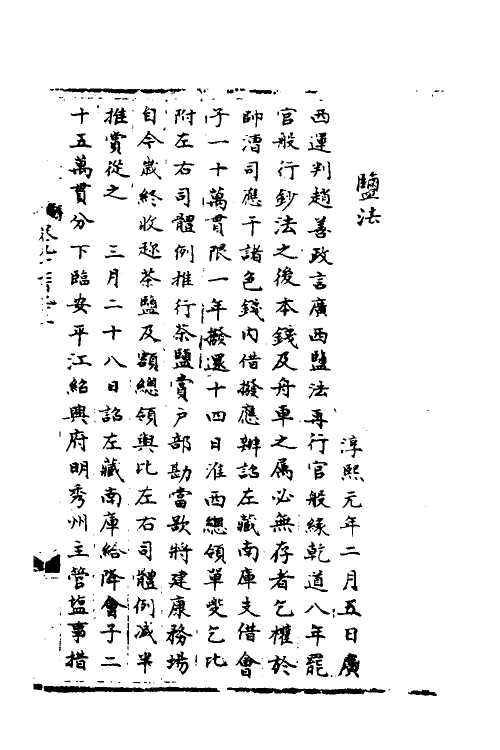 鹽法
淳熙元年二月五日廣
西運判趙善政言廣西鹽法再行官般緣乾道八年罷
官般行鈔法之後本錢及舟車之屬必無存者乞權於
帥漕司應干諸色錢內借撥應辦詔左藏南庫支借會
子一十萬貫限一年撥還十四日淮西總領單夔乞比
附左右司體例推行茶鹽賞戶部勘當欲將建康務場
自今歲終收趂茶鹽及額總領與比左右司體例減半
推賞從之 三月二十八日詔左藏南庫給降會子二
十五萬貫分下臨安平江紹興府明秀州主管塩事措